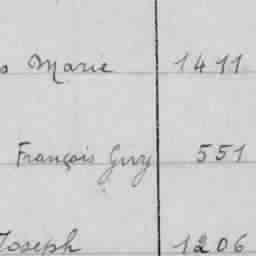 Marie 1411
François Guy 551
Joseph 1206